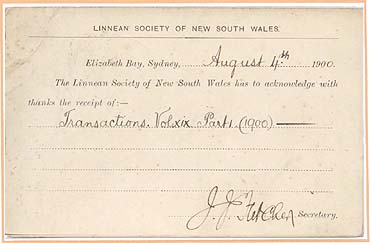 LINNEAN SOCIETY OF NEW SOUTH WALES.
Elizabeth Bay, Sydney, August 4th 1900.
The Linnean Society of New South Wales has to acknowledge with
thanks the receipt of:—
Transactions. Vol. xix Part 1. (1900) ———
J. J. Fletcher, Secretary.